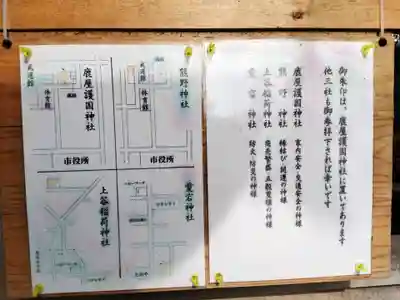 御朱印は、鹿屋護国神社に置いてあります
他三社も御参拝下されば幸いです
鹿屋護国神社 家内安全・交通安全の神様
熊野神社 縁結び・開運の神様
上谷稲荷神社 商売繁盛・五穀豊穣の神様
愛宕神社 防火・防災の神様
熊野神社
体育館
武道館
市役所
鹿屋護国神社
武道館
体育館
市役所
愛宕神社
上谷稲荷神社